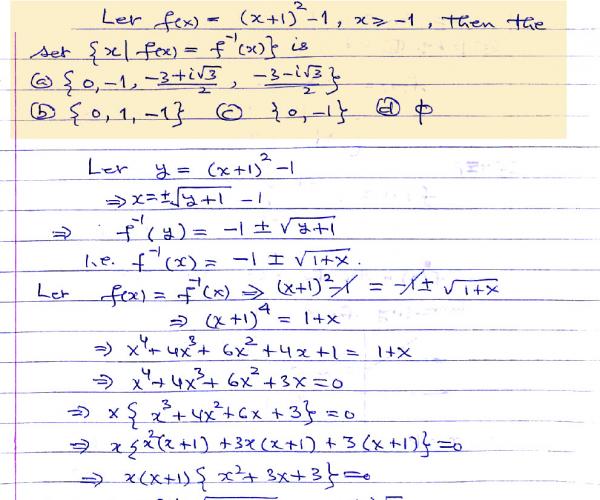 Let f(x) = (x+1)² -1, x ≥ -1, then the
set {x| f(x) = f⁻¹(x)} is
(a) {0, -1, (-3+i√3)/2, (-3-i√3)/2}
(b) {0, 1, -1} (c) {0, -1} (d) ϕ
Let y = (x+1)² -1
⇒ x = ±√(y+1) -1
⇒ f⁻¹(y) = -1 ± √(y+1)
i.e. f⁻¹(x) = -1 ± √(1+x).
Let f(x) = f⁻¹(x) ⇒ (x+1)² -1 = -1 ± √(1+x)
⇒ (x+1)⁴ = 1+x
⇒ x⁴+4x³+6x²+4x+1 = 1+x
⇒ x⁴+4x³+6x²+3x=0
⇒ x{x³+4x²+6x+3}=0
⇒ x{x²(x+1)+3x(x+1)+3(x+1)}=0
⇒ x(x+1){x²+3x+3}=0